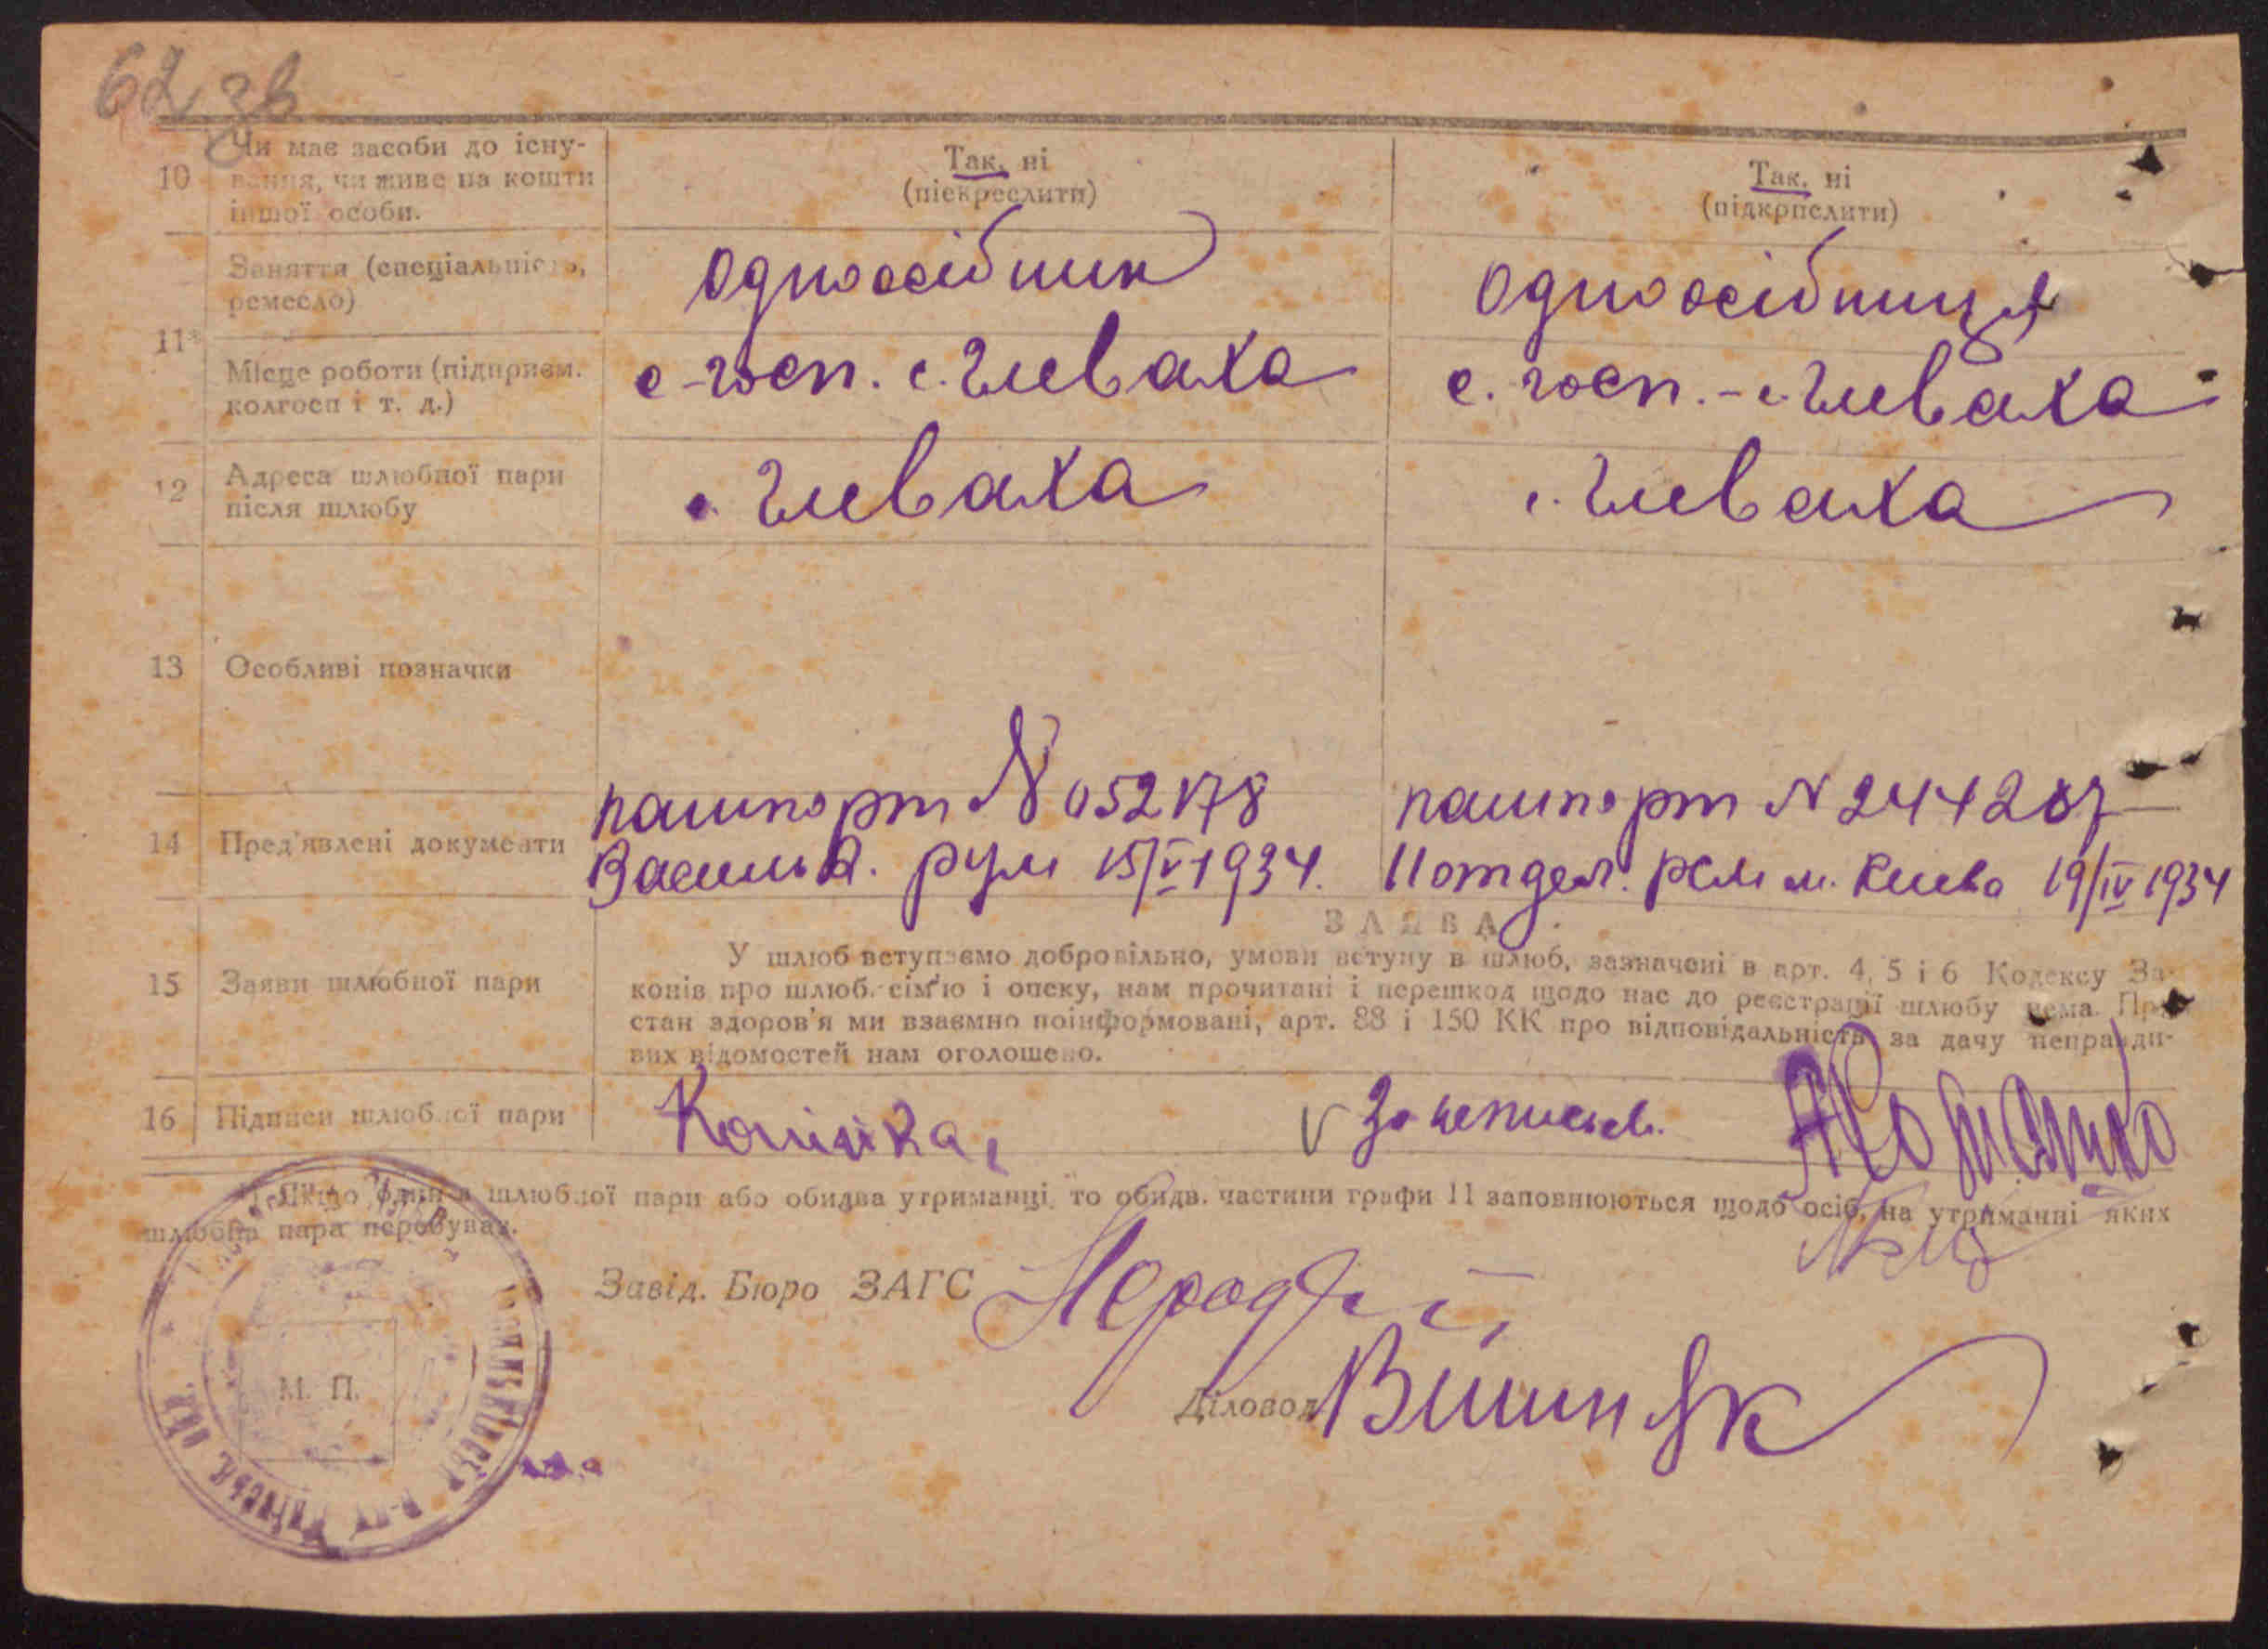 62 зв
10
Чи має засоби до існу-
вання, чи живе на кошти
іншої особи.
Так, ні
(піекреслити)
Так, ні
(підкрпслити)
11*
Заняття (спеціальність,
ремесло)
Одноосібник
Одноосібниця
Місце роботи (підприєм.
колгосп і т. д.)
с-госп. с. Гливаха
с. госп. - с. Гливаха
12
Адреса шлюбної пари
після шлюбу
с. Гливаха
с. Гливаха
13
Особливі позначки
14
Пред'явлені документи
пашпорт N 052178
Васильк. рум 15/V 1934.
пашпорт N 244287
11 отдел. РСМ м. Києва 19/IV 1934
ЗАЯВА
15
Заяви шлюбної пари
У шлюб вступаємо добровільно, умови вступу в шлюб, зазначені в арт. 4, 5 і 6 Кодексу За-
конів про шлюб. сім'ю і опску, нам прочитані і перешкод щодо нас до реєстрації шлюбу нема. Про
стан здоров'я ми взаємно поінформовані, арт. 88 і 150 КК про відповідальність за дачу неправди-
вих відомостей нам оголошено.
16
Підписи шлюбної пари
За неписьм.
*) Якщо один з шлюбної пари або обидва утриманці, то обидв. частини графи 11 заповнюються щодо осіб, на утриманні яких
шлюбна пара перебуває.
Завід. Бюро ЗАГС
М. П.
Діловод